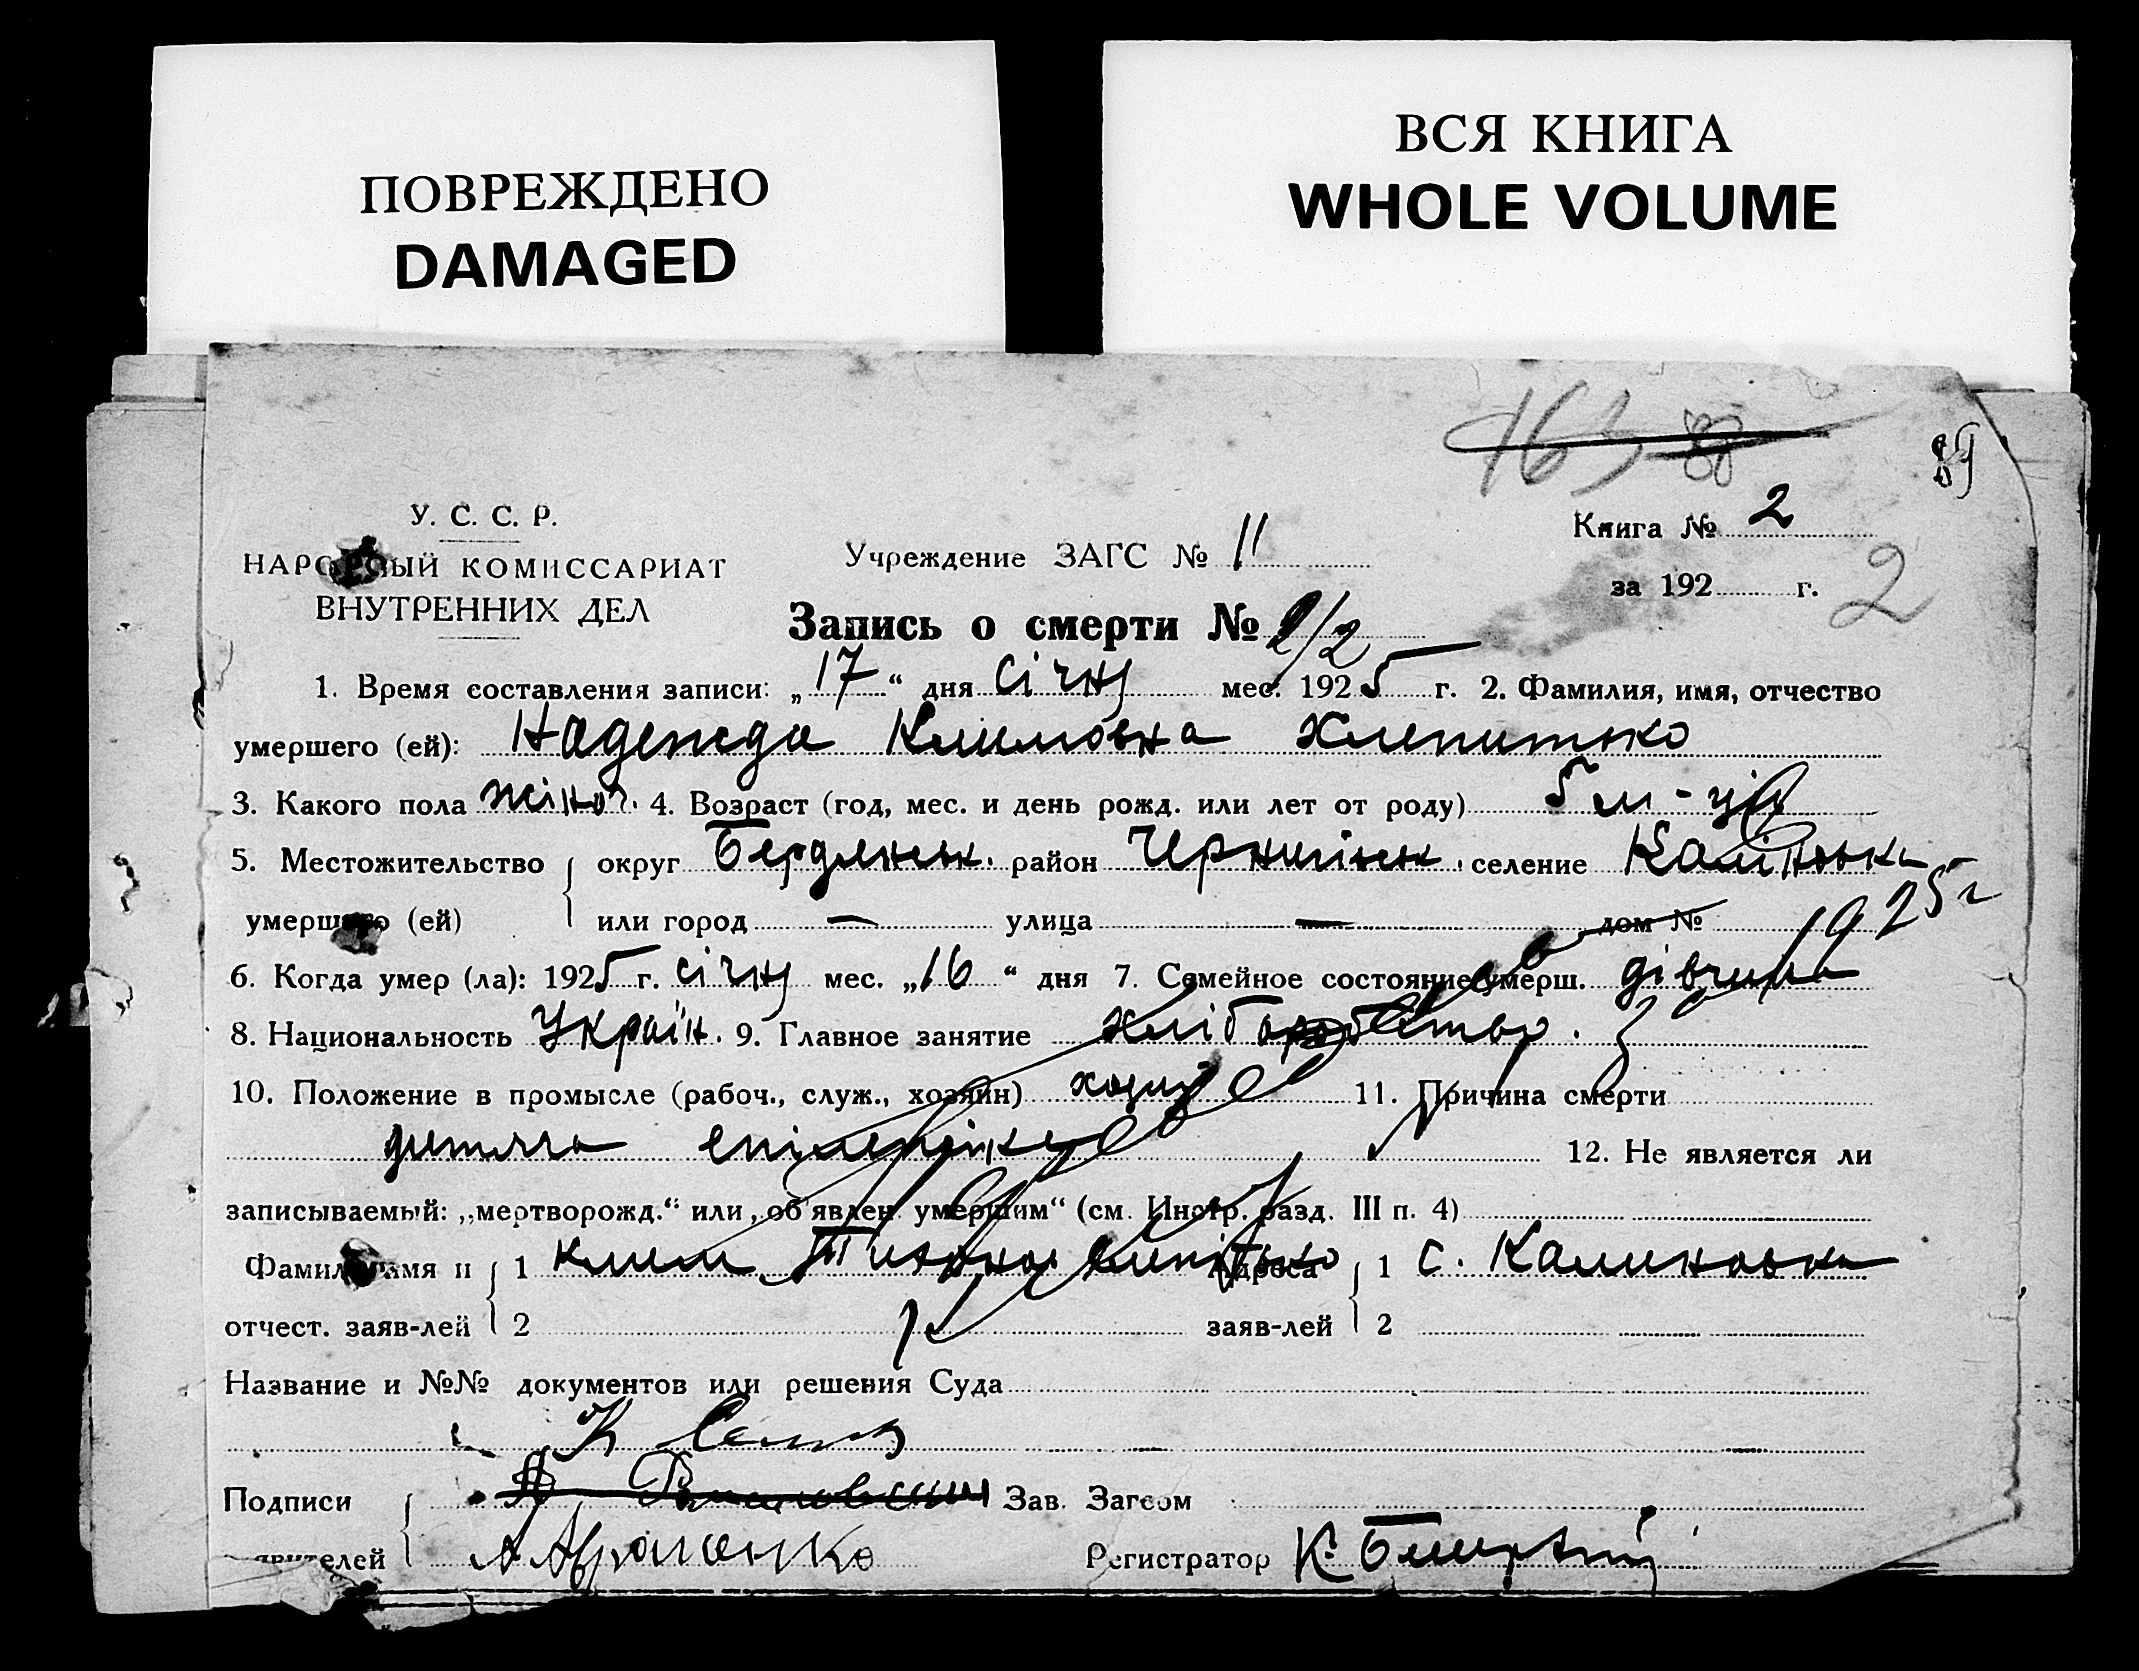 ПОВРЕЖДЕНО
DAMAGED
ВСЯ КНИГА
WHOLE VOLUME
163 88
89
У. С. С. Р.
НАРОДНЫЙ КОМИССАРИАТ
ВНУТРЕННИХ ДЕЛ
Учреждение ЗАГС № 11
Книга № 2
за 192 г. 2
Запись о смерти № 2/2
1. Время составления записи: „17“ дня січня мес. 1925 г. 2. Фамилия, имя, отчество
умершего (ей): Надежда Климовна Хлепитько
3. Какого пола жіноч. 4. Возраст (год, мес. и день рожд. или лет от роду) 5 м-ців
5. Местожительство умершего (ей) { округ Бердянськ. район Чернигівськ. селение Каліновка
или город — улица — дом № 1925 г
6. Когда умер (ла): 1925 г. січня мес. „16“ дня 7. Семейное состояние умерш. дівчина
8. Национальность Україн. 9. Главное занятие хліборобство.
10. Положение в промысле (рабоч., служ., хозяин) 11. Причина смерти
дитяча 12. Не является ли
записываемый: „мертворожд.“ или „об'явлен умершим“ (см. Инстр. разд. III п. 4)
Фамилия имя и отчест. заяв-лей { 1 Клим Адреса заяв-лей { 1 с. Калиновка
2 2
Название и №№ документов или решения Суда
К
Подписи Зав. Загсом
явителей Регистратор К.